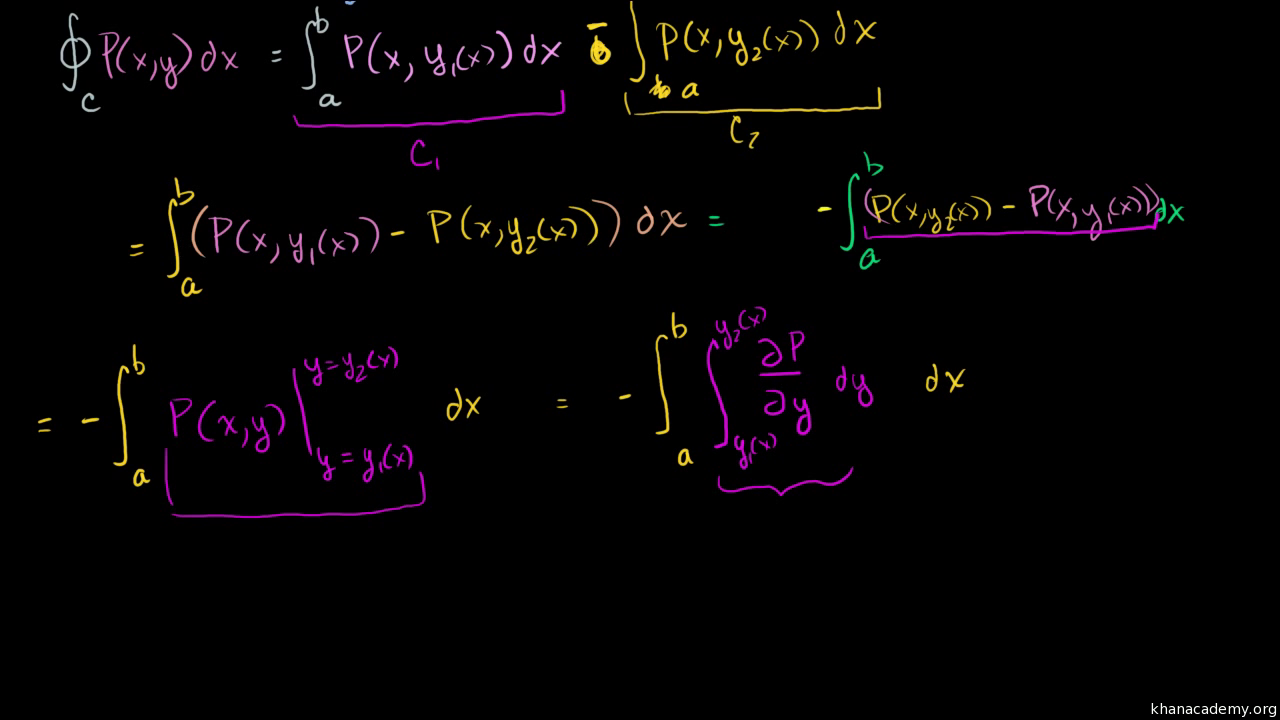 ∮_C P(x,y) dx = ∫_a^b P(x, y₁(x)) dx − ∫_a^b P(x, y₂(x)) dx
C₁ C₂
= ∫_a^b (P(x, y₁(x)) − P(x, y₂(x))) dx = − ∫_a^b (P(x, y₂(x)) − P(x, y₁(x))) dx
= − ∫_a^b P(x,y) |_{y = y₁(x)}^{y = y₂(x)} dx = − ∫_a^b ∫_{y₁(x)}^{y₂(x)} ∂P/∂y dy dx
khanacademy.org